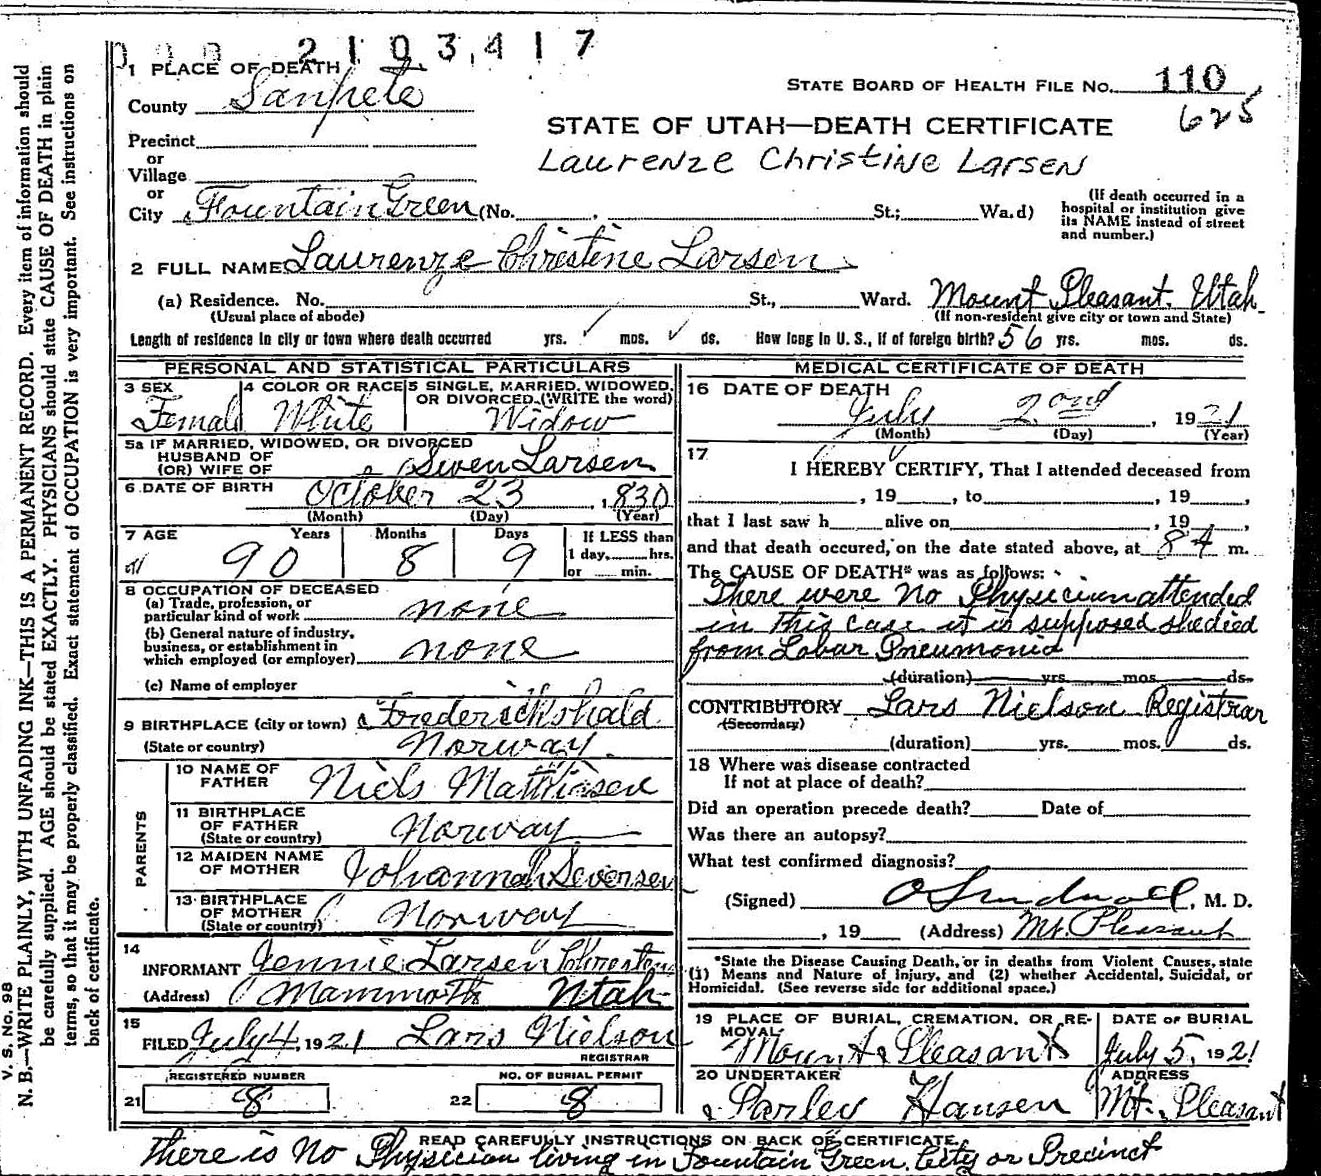 2103417
1 PLACE OF DEATH
STATE BOARD OF HEALTH FILE NO. 110
County Sanpete
625
STATE OF UTAH—DEATH CERTIFICATE
Precinct
or
Village
Laurenze Christine Larsen
or
City Fountain Green (No. , St.; Wa.d)
(If death occurred in a hospital or institution give its NAME instead of street and number.)
2 FULL NAME Laurenze Christine Larsen
(a) Residence. No. St., Ward. Mount Pleasant. Utah
(Usual place of abode) (If non-resident give city or town and State)
Length of residence in city or town where death occurred yrs. mos. ds. How long in U. S., if of foreign birth? 56 yrs. mos. ds.
PERSONAL AND STATISTICAL PARTICULARS
3 SEX Female
4 COLOR OR RACE White
5 SINGLE, MARRIED, WIDOWED, OR DIVORCED (WRITE the word) Widow
5a IF MARRIED, WIDOWED, OR DIVORCED
HUSBAND OF
(OR) WIFE OF Swen Larsen
6 DATE OF BIRTH October 23, 1830
(Month) (Day) (Year)
7 AGE Years Months Days If LESS than
90 8 9 1 day, hrs.
or min.
8 OCCUPATION OF DECEASED
(a) Trade, profession, or
particular kind of work none
(b) General nature of industry,
business, or establishment in
which employed (or employer) none
(c) Name of employer
9 BIRTHPLACE (city or town) Frederickshald
(State or country) Norway.
PARENTS
10 NAME OF
FATHER Niels Matthiasen
11 BIRTHPLACE
OF FATHER
(State or country) Norway
12 MAIDEN NAME
OF MOTHER Johannah Seversen
13 BIRTHPLACE
OF MOTHER
(State or country) Norway
14
INFORMANT Jennie Larsen
(Address) Mammoth Utah
15
FILED July 4, 1921 Lars Nielson
REGISTRAR
REGISTERED NUMBER
21 8
NO. OF BURIAL PERMIT
22 8
MEDICAL CERTIFICATE OF DEATH
16 DATE OF DEATH
July 2ond 1921
(Month) (Day) (Year)
17
I HEREBY CERTIFY, That I attended deceased from
, 19 , to , 19 ,
that I last saw h alive on , 19 ,
and that death occured, on the date stated above, at 8 m.
The CAUSE OF DEATH* was as follows:
There were no Physician attended
in this case it is supposed she died
from Lobar Pneumonia
(duration) yrs. mos. ds.
CONTRIBUTORY Lars Nielson Registrar
(Secondary)
(duration) yrs. mos. ds.
18 Where was disease contracted
If not at place of death?
Did an operation precede death? Date of
Was there an autopsy?
What test confirmed diagnosis?
(Signed) , M. D.
, 19 (Address) Mt. Pleasant
*State the Disease Causing Death, or in deaths from Violent Causes, state
(1) Means and Nature of Injury, and (2) whether Accidental, Suicidal, or
Homicidal. (See reverse side for additional space.)
19 PLACE OF BURIAL, CREMATION, OR RE-
MOVAL Mount Pleasant
DATE OF BURIAL
July 5, 1921
20 UNDERTAKER
Hansen
ADDRESS
Mt. Pleasant
READ CAREFULLY INSTRUCTIONS ON BACK OF CERTIFICATE.
There is no Physician living in Fountain Green City or Precinct
V. S. No. 98
N. B.—WRITE PLAINLY, WITH UNFADING INK—THIS IS A PERMANENT RECORD. Every item of information should
be carefully supplied. AGE should be stated EXACTLY. PHYSICIANS should state CAUSE OF DEATH in plain
terms, so that it may be properly classified. Exact statement of OCCUPATION is very important. See instructions on
back of certificate.